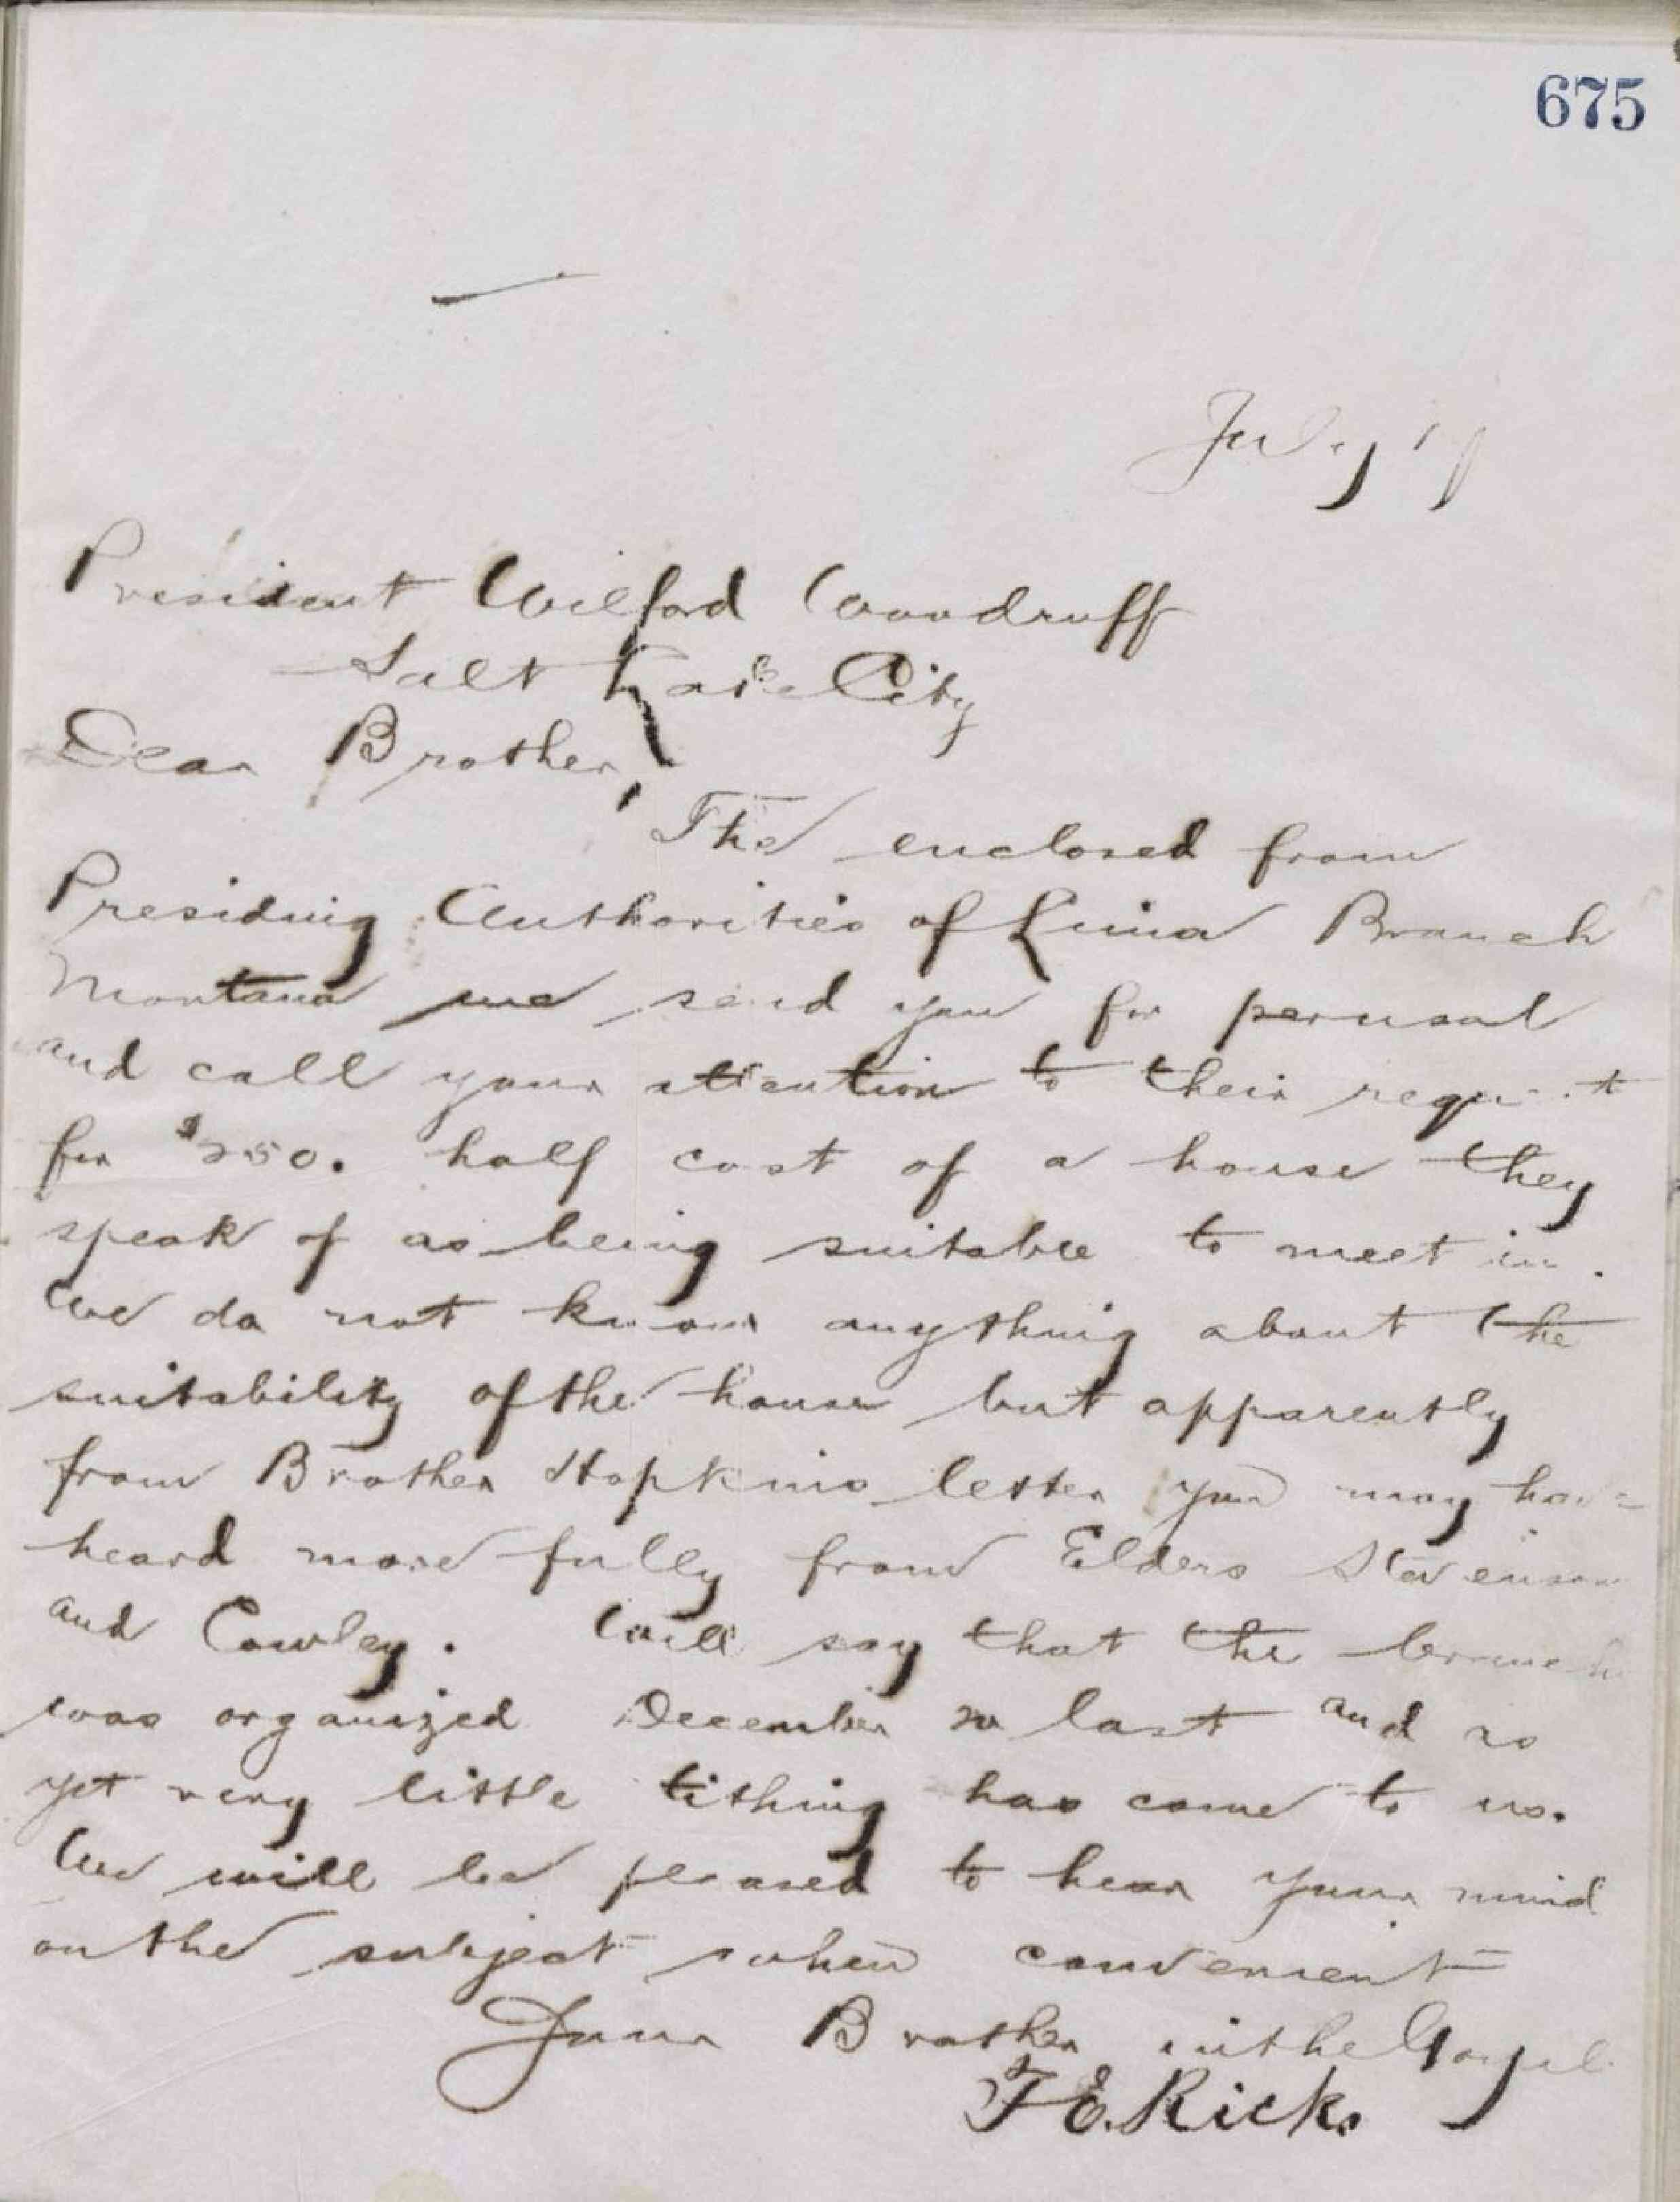 675
July
President Wilford Woodruff
Salt Lake City
Dear Brother,
The enclosed from
Presiding Authorities of Lima Branch
Montana we send you for perusal
and call your attention to their request
for $250. half cost of a house they
speak of as being suitable to meet in.
We do not know anything about the
suitability of the house but apparently
from Brother Hopkins letter you may have
heard more fully from Elders Stevenson
and Cowley. Will say that the branch
was organized December last and as
yet very little tithing has come to us.
We will be pleased to hear your mind
on the subject when convenient
Your Brother in the Gospel
T E. Ricks